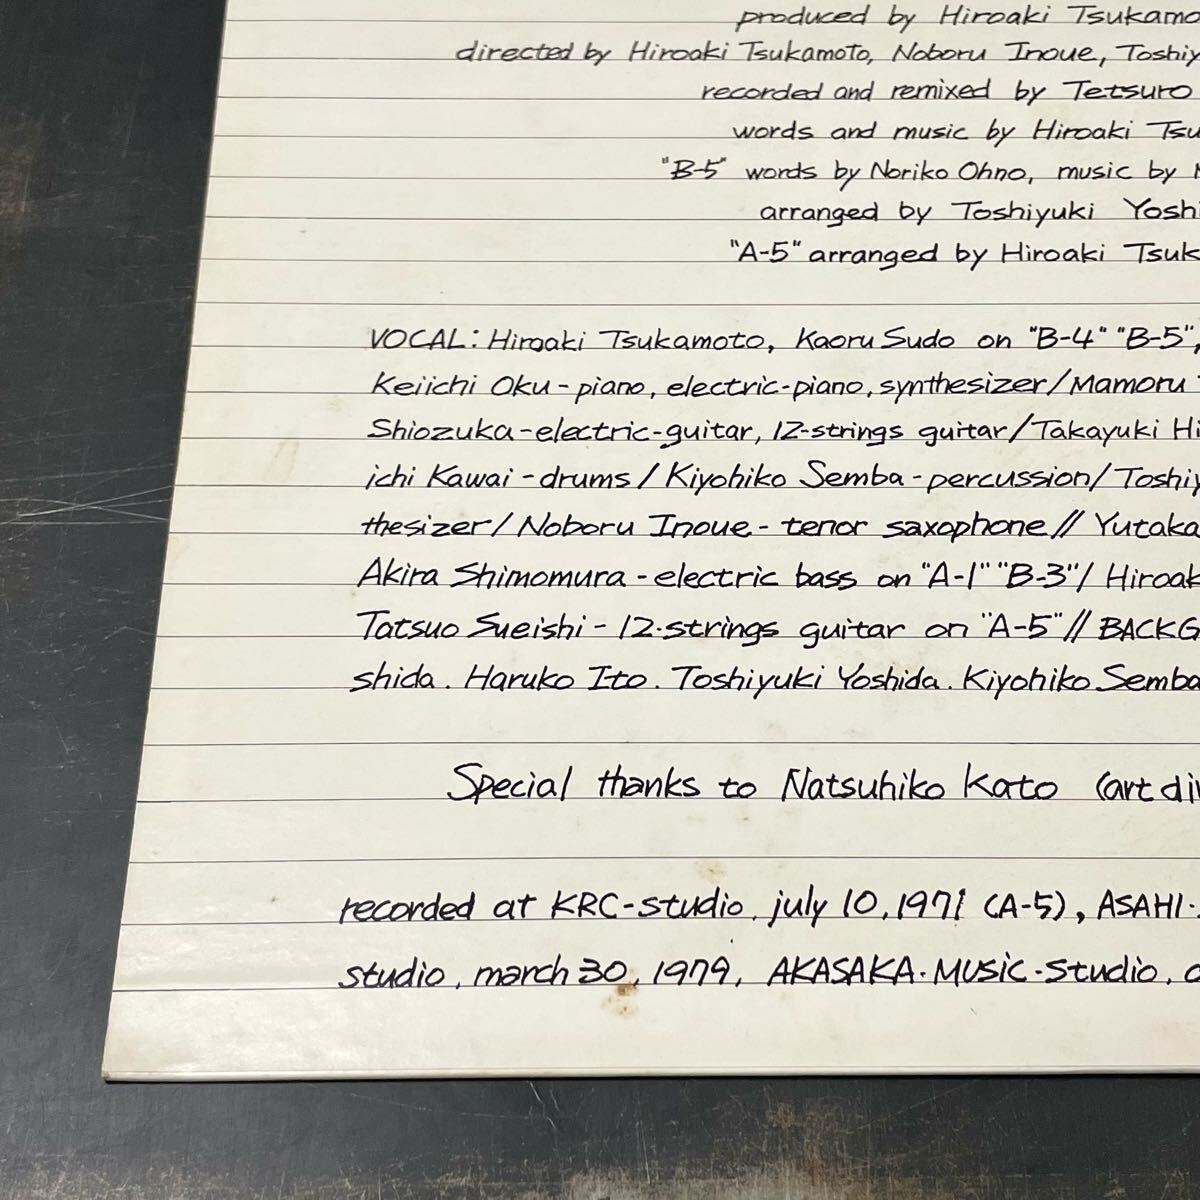 produced by Hiroaki Tsukamo
directed by Hiroaki Tsukamoto, Noboru Inoue, Toshiy
recorded and remixed by Tetsuro
words and music by Hiroaki Tsu
"B-5" words by Noriko Ohno, music by
arranged by Toshiyuki Yoshi
"A-5" arranged by Hiroaki Tsuk
VOCAL: Hiroaki Tsukamoto, Kaoru Sudo on "B-4" "B-5",
Keiichi Oku-piano, electric-piano, synthesizer/Mamoru
Shiozuka-electric-guitar, 12-strings guitar/Takayuki Hi
ichi Kawai-drums/Kiyohiko Semba-percussion/Toshiy
thesizer/Noboru Inoue-tenor saxophone//Yutaka
Akira Shimomura-electric bass on "A-1" "B-3"/Hiroak
Tatsuo Sueishi-12-strings guitar on "A-5"//BACKG
shida. Haruko Ito. Toshiyuki Yoshida. Kiyohiko Semba
Special thanks to Natsuhiko Kato (art di
recorded at KRC-studio, july 10, 1971 (A-5), ASAHI-
studio, march 30, 1979, AKASAKA-MUSIC-studio,